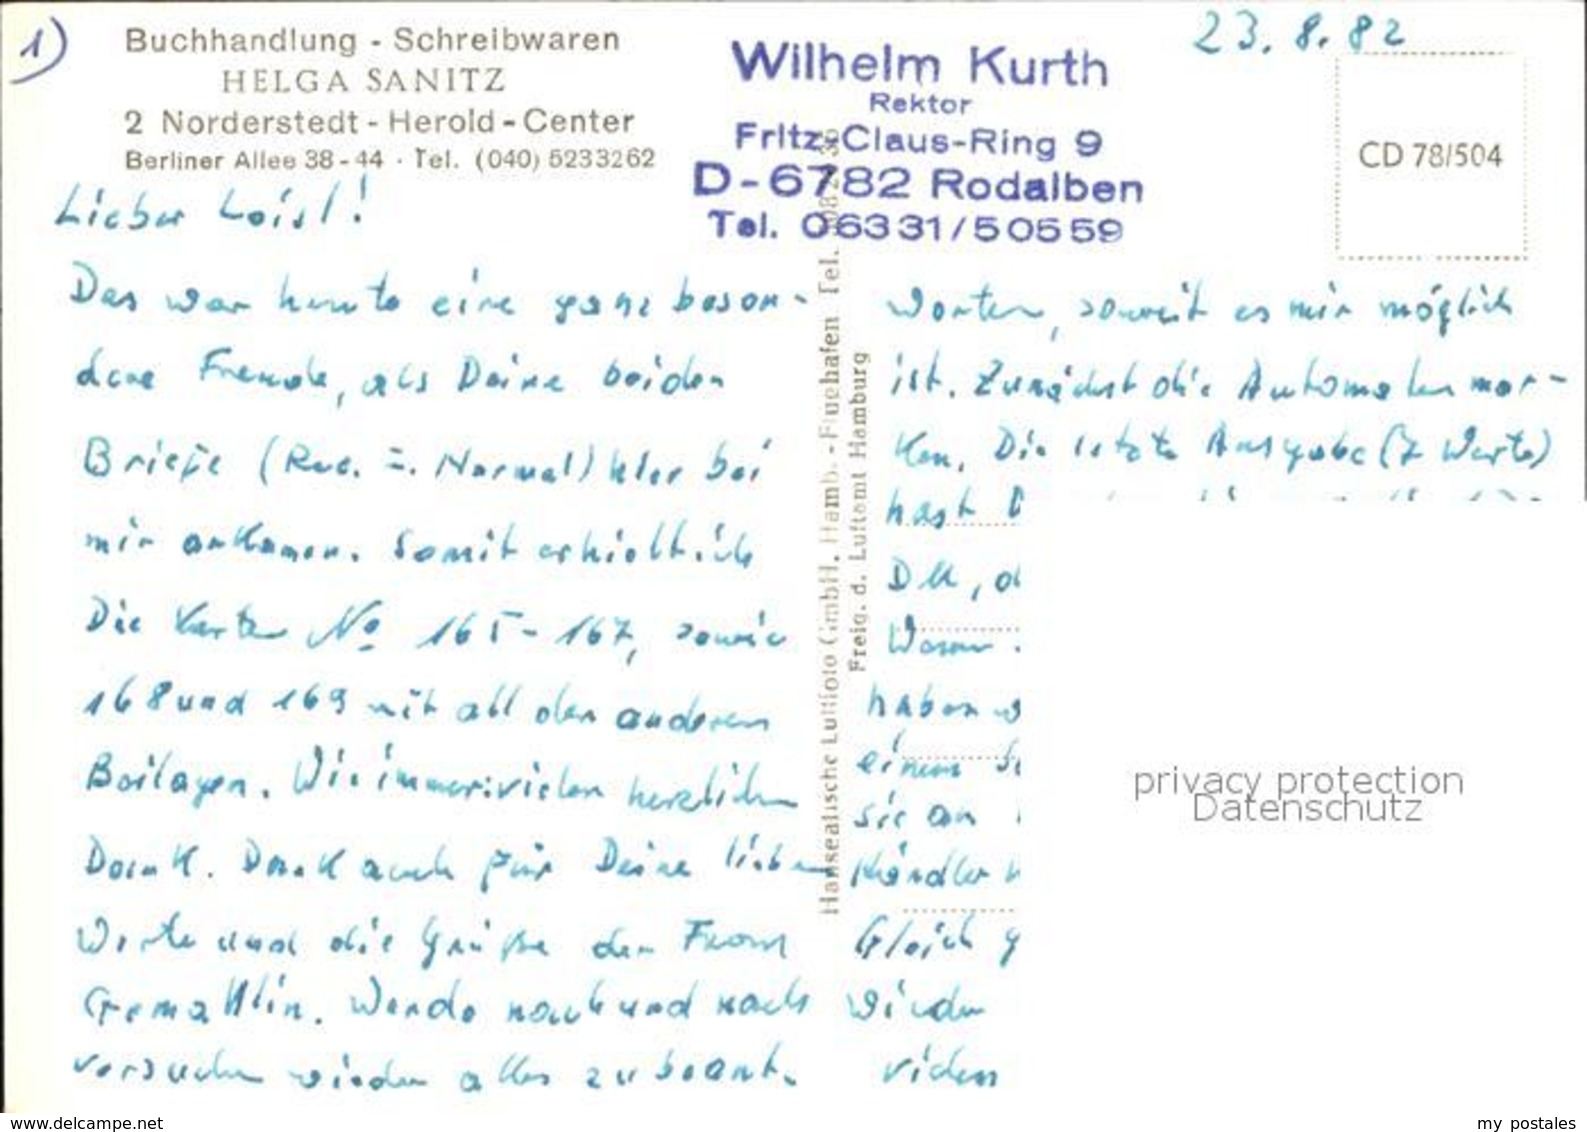 1)
Buchhandlung - Schreibwaren
HELGA SANITZ
2 Norderstedt - Herold - Center
Berliner Allee 38 - 44 · Tel. (040) 5233262
Wilhelm Kurth
Rektor
Fritz-Claus-Ring 9
D-6782 Rodalben
Tel. 06331/50559
23. 8. 82
CD 78/504
Lieber Loisl!
Das war heute eine ganz beson-
dere Freude, als Deine beiden
Briefe (Rec. u. Normal) hier bei
mir ankamen. Somit erhielt ich
Die Karten No 165-167, sowie
168 und 169 mit all den anderen
Beilagen. Wie immer: vielen herzlichen
Dank. Dank auch für Deine lieben
Worte und die Grüße der Frau
Gemahlin. Werde nach und nach
versuchen wieder alles zu beant-
Hanseatische Luftfoto GmbH, Hamb.-Flughafen Tel.
Freig. d. Luftamt Hamburg
worten, soweit es mir möglich
ist. Zunächst die Automatenmar-
ken. Die letzte Ausgabe (7 Werte)
hast D
DK, d
Waren
haben w
einem
sie an
Händler
Gleich g
wieder
vielen
privacy protection
Datenschutz
www.delcampe.net
my_postales